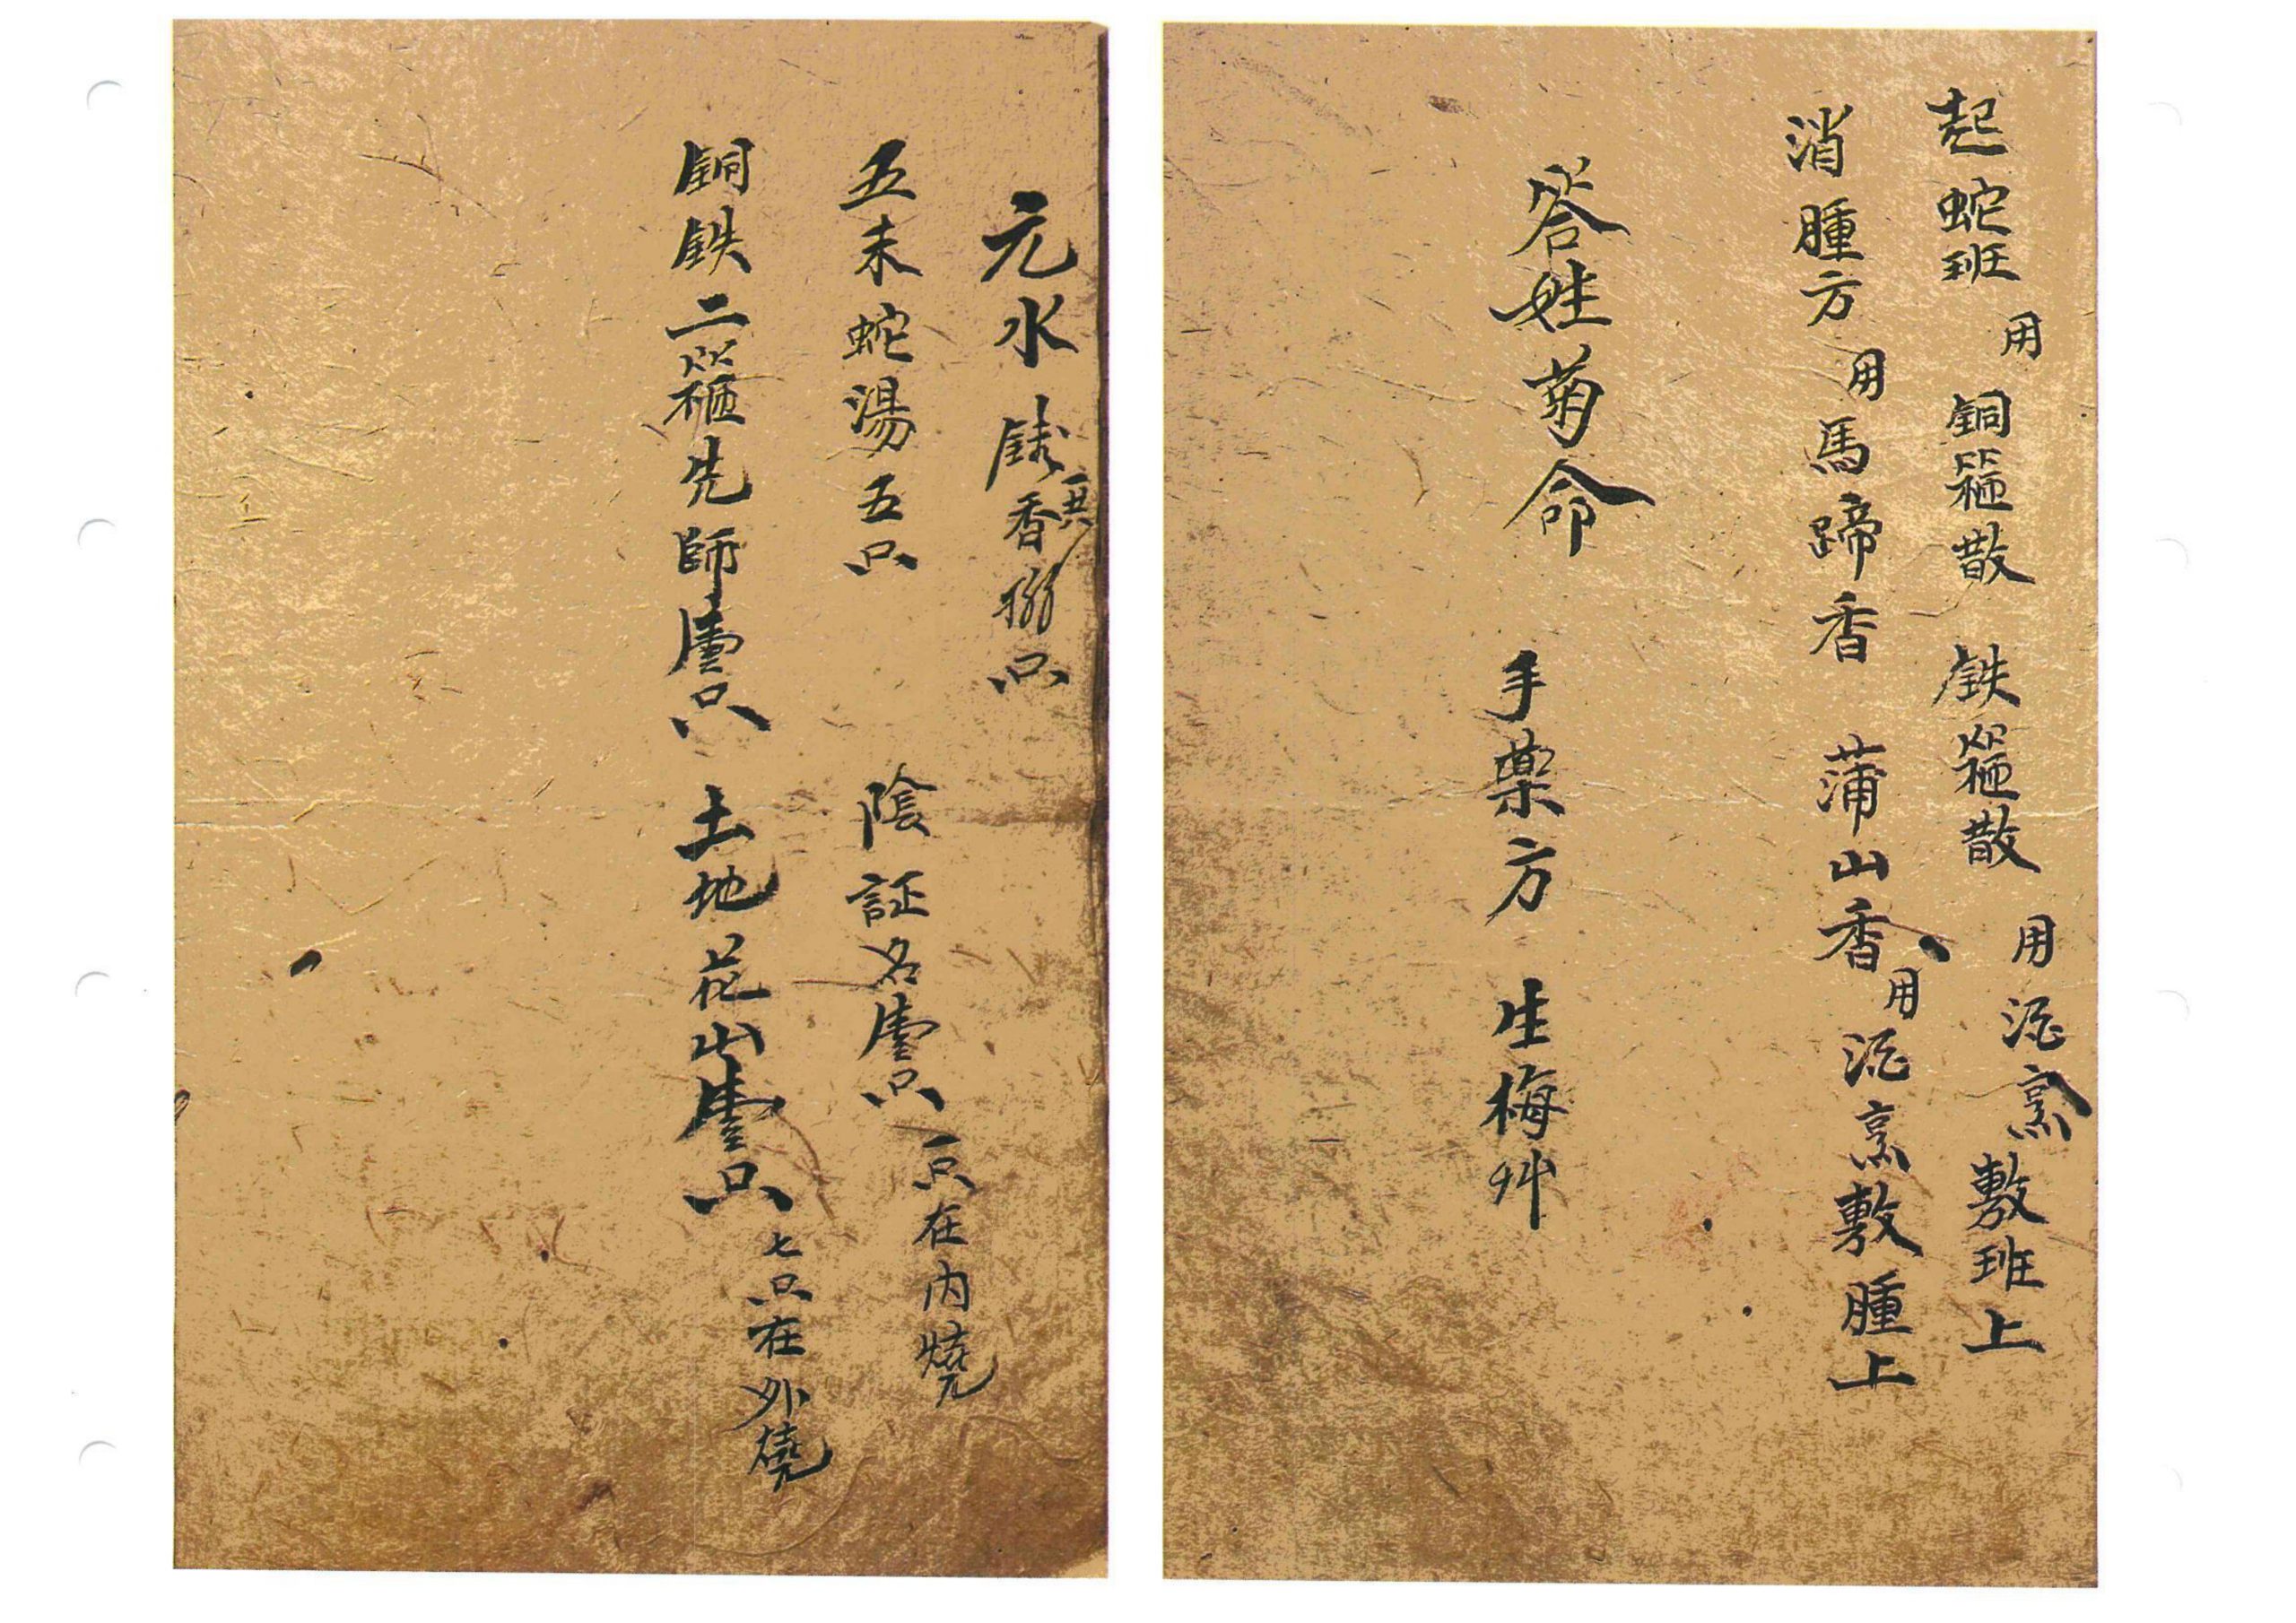 起蛇班 用 銅箍散 鉄箍散 用酒烹敷班上
消腫方 用馬蹄香 蒲山香 用酒烹敷腫上
答姓菊命 手藥方 生梅艸
元水 香 只
五未蛇湯五只 陰証名壹只 一只在內燒
銅鉄二箍先師壹只 土地花山壹只 七只在外燒